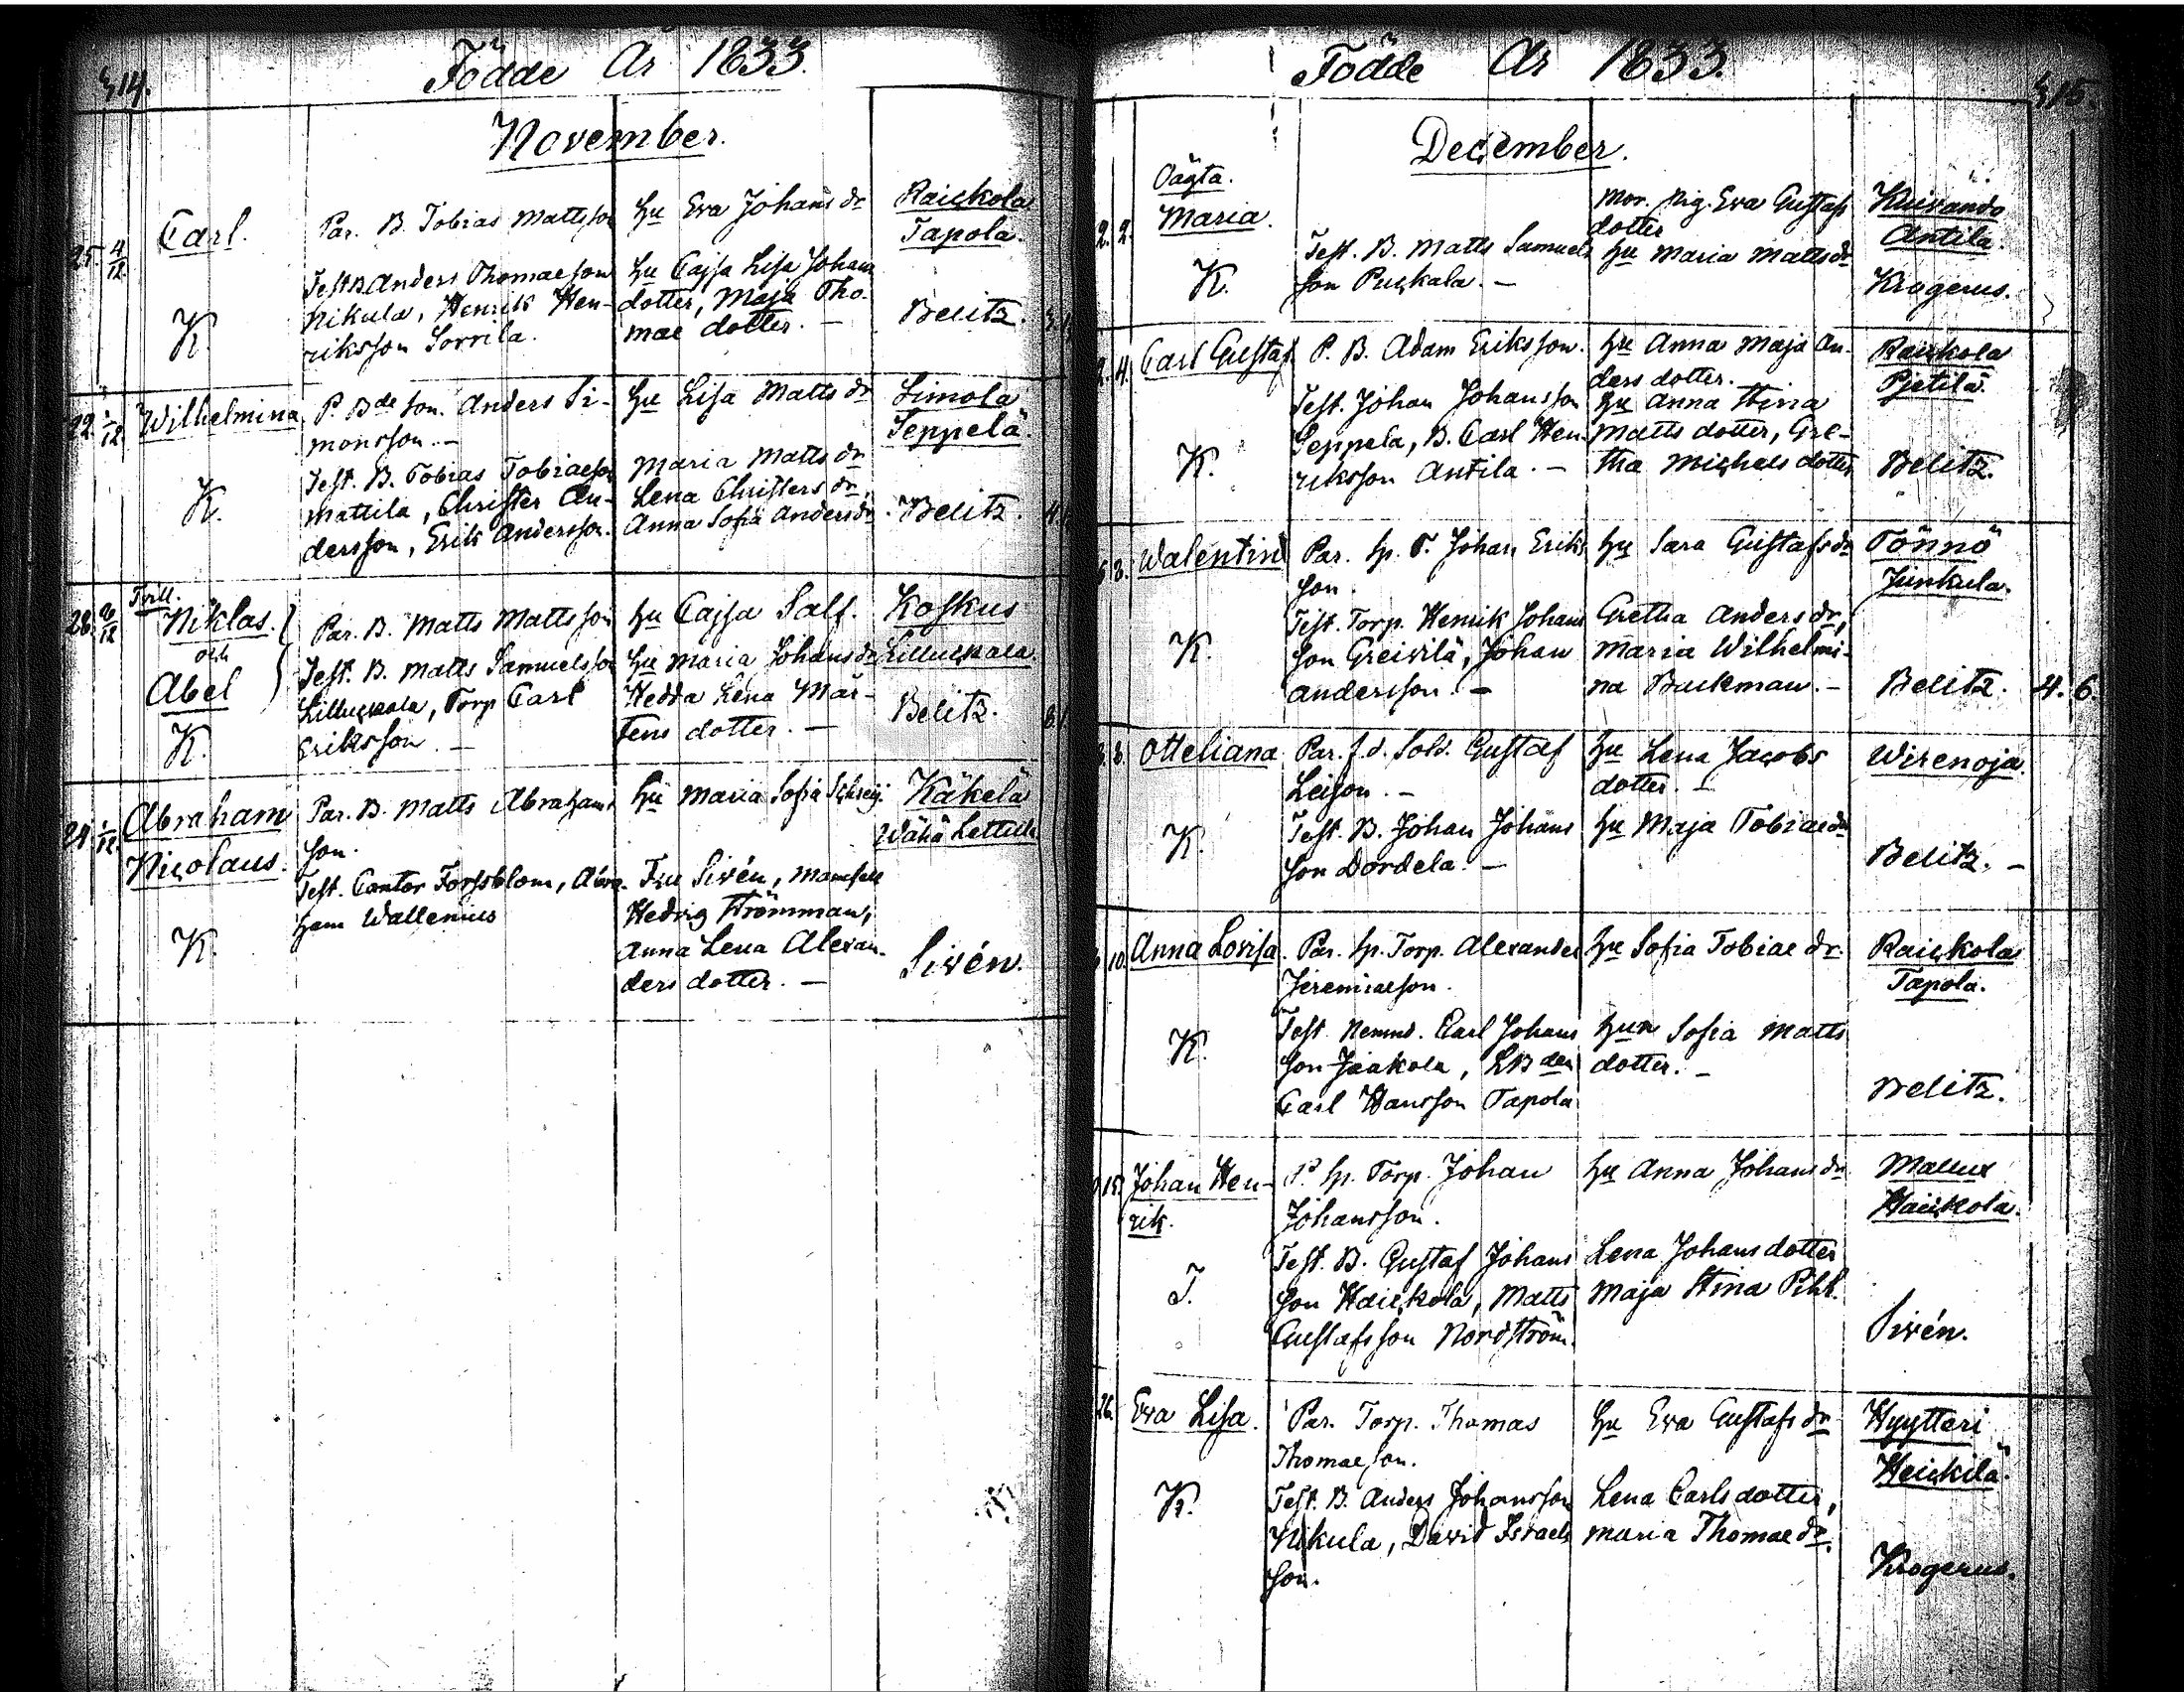 14.
Födde År 1833.
November.
25. 4/12
Carl.
K.
Par. B. Tobias Mattsson
Test. B. Anders Thomaeson
Nikula, Henrik Hen-
riksson Sorrila.
Hu Eva Johans dr
Hu Cajsa Lisa Johans
dotter, Maja Tho-
mae dotter. —
Raickola
Tapola.
Belitz.
22. 1/12
Wilhelmina
K.
P. Bde son. Anders Si-
monsson. —
Test. B. Tobias Tobiaeson
Mattila, Christer An-
dersson, Erik Andersson.
Hu Lisa Matts dr
Maria Matts dr
Lena Christers dr,
Anna Sofia Anders dr
Simola
Seppelä.
Belitz.
28.
Tvill.
Niklas.
och
Abel
K.
Par. B. Matts Mattsson
Test. B. Matts Samuelsson
Lilluckala, Torp Carl
Eriksson. —
Hu Cajsa Salf.
Hu Maria Johans dr
Hedda Lena Mår-
tens dotter. —
Koskus
Lilluckala.
Belitz.
24. 1/12
Abraham
Nicolaus.
K.
Par. B. Matts Abrahams
son.
Test. Cantor Forssblom, Abra-
ham Wallenius
Hu Maria Sofia
Fru Sivén, Mamsell
Hedvig Strömman,
Anna Lena Alexan-
ders dotter. —
Käkelä
Wähä
Sivén.
15.
Födde År 1833.
December.
2. 2.
Oägta.
Maria.
K.
Test. B. Matts Samuels
son Puckala. —
Mor. Pig. Eva Gustafs
dotter
Hu Maria Matts dr
Kuivando
Antila.
Krogerus.
2. 4.
Carl Gustaf
K.
P. B. Adam Eriksson.
Test. Johan Johansson
Seppela, B. Carl Hen-
riksson Antila. —
Hu Anna Maja An-
ders dotter.
Hu Anna Stina
Matts dotter, Gre-
tha Michels dotter
Raickola
Pietilä.
Belitz.
8.
Walentin
K.
Par. Sp. T. Johan Eriks
son.
Test. Torp. Henrik Johans
son Greivilä, Johan
Andersson. —
Hu Sara Gustafs dr
Gretha Anders dr,
Maria Wilhelmi-
na Backman. —
Tönnö
Junkula.
Belitz.
4. 6.
8.
Otteliana
K.
Par. f.d. Sold. Gustaf
Leijon. —
Test. B. Johan Johans
son Dordela. —
Hu Lena Jacobs
dotter. —
Hu Maja Tobiae dr
Wirenoja.
Belitz. —
10.
Anna Lovisa
K.
Par. Sp. Torp. Alexander
Jeremiaeson.
Test. Nemnd. Carl Johans
son Jaakola, LBden
Carl Hansson Tapola
Hu Sofia Tobiae dr.
Hun Sofia Matts
dotter. —
Raickola
Tapola.
Belitz.
15.
Johan Hen-
rik.
T.
P. Sp. Torp. Johan
Johansson.
Test. B. Gustaf Johans
son Haickola, Matts
Gustafsson Nordström.
Hu Anna Johans dr
Lena Johans dotter
Maja Stina Pihl.
Mallux
Haickola.
Sivén.
26.
Eva Lisa.
K.
Par. Torp. Thomas
Thomaeson.
Test. B. Anders Johansson
Nikula, David Israels
son.
Hu Eva Gustafs dr
Lena Carls dotter,
Maria Thomae dr.
Hyytteri
Heickilä.
Krogerus.